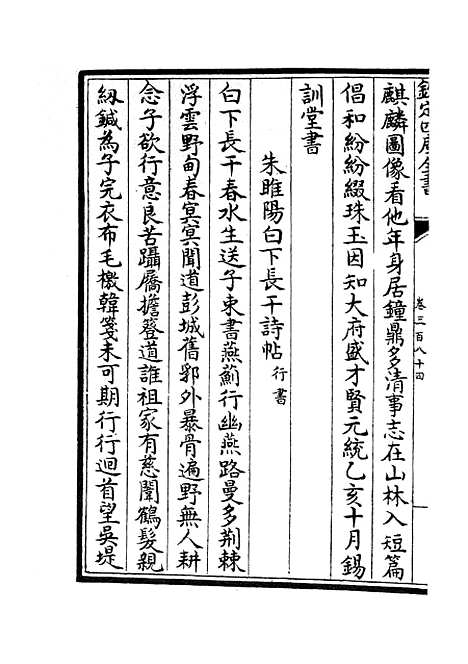 欽定四庫全書
卷三百八十四
麒麟圖像看他年身居鐘鼎多清事志在山林入短篇
倡和紛紛綴珠玉因知大府盛才賢元統乙亥十月錫
訓堂書
朱睢陽白下長干詩帖行書
白下長干春水生送子束書燕薊行幽燕路曼多荆棘
浮雲野甸春冥冥聞道彭城舊郛外暴骨遍野無人耕
念子欲行意良苦躡屩擔簦道誰祖家有慈闈鶴髮親
紉鍼為子完衣布毛檄韓箋未可期行行迴首望吳堤